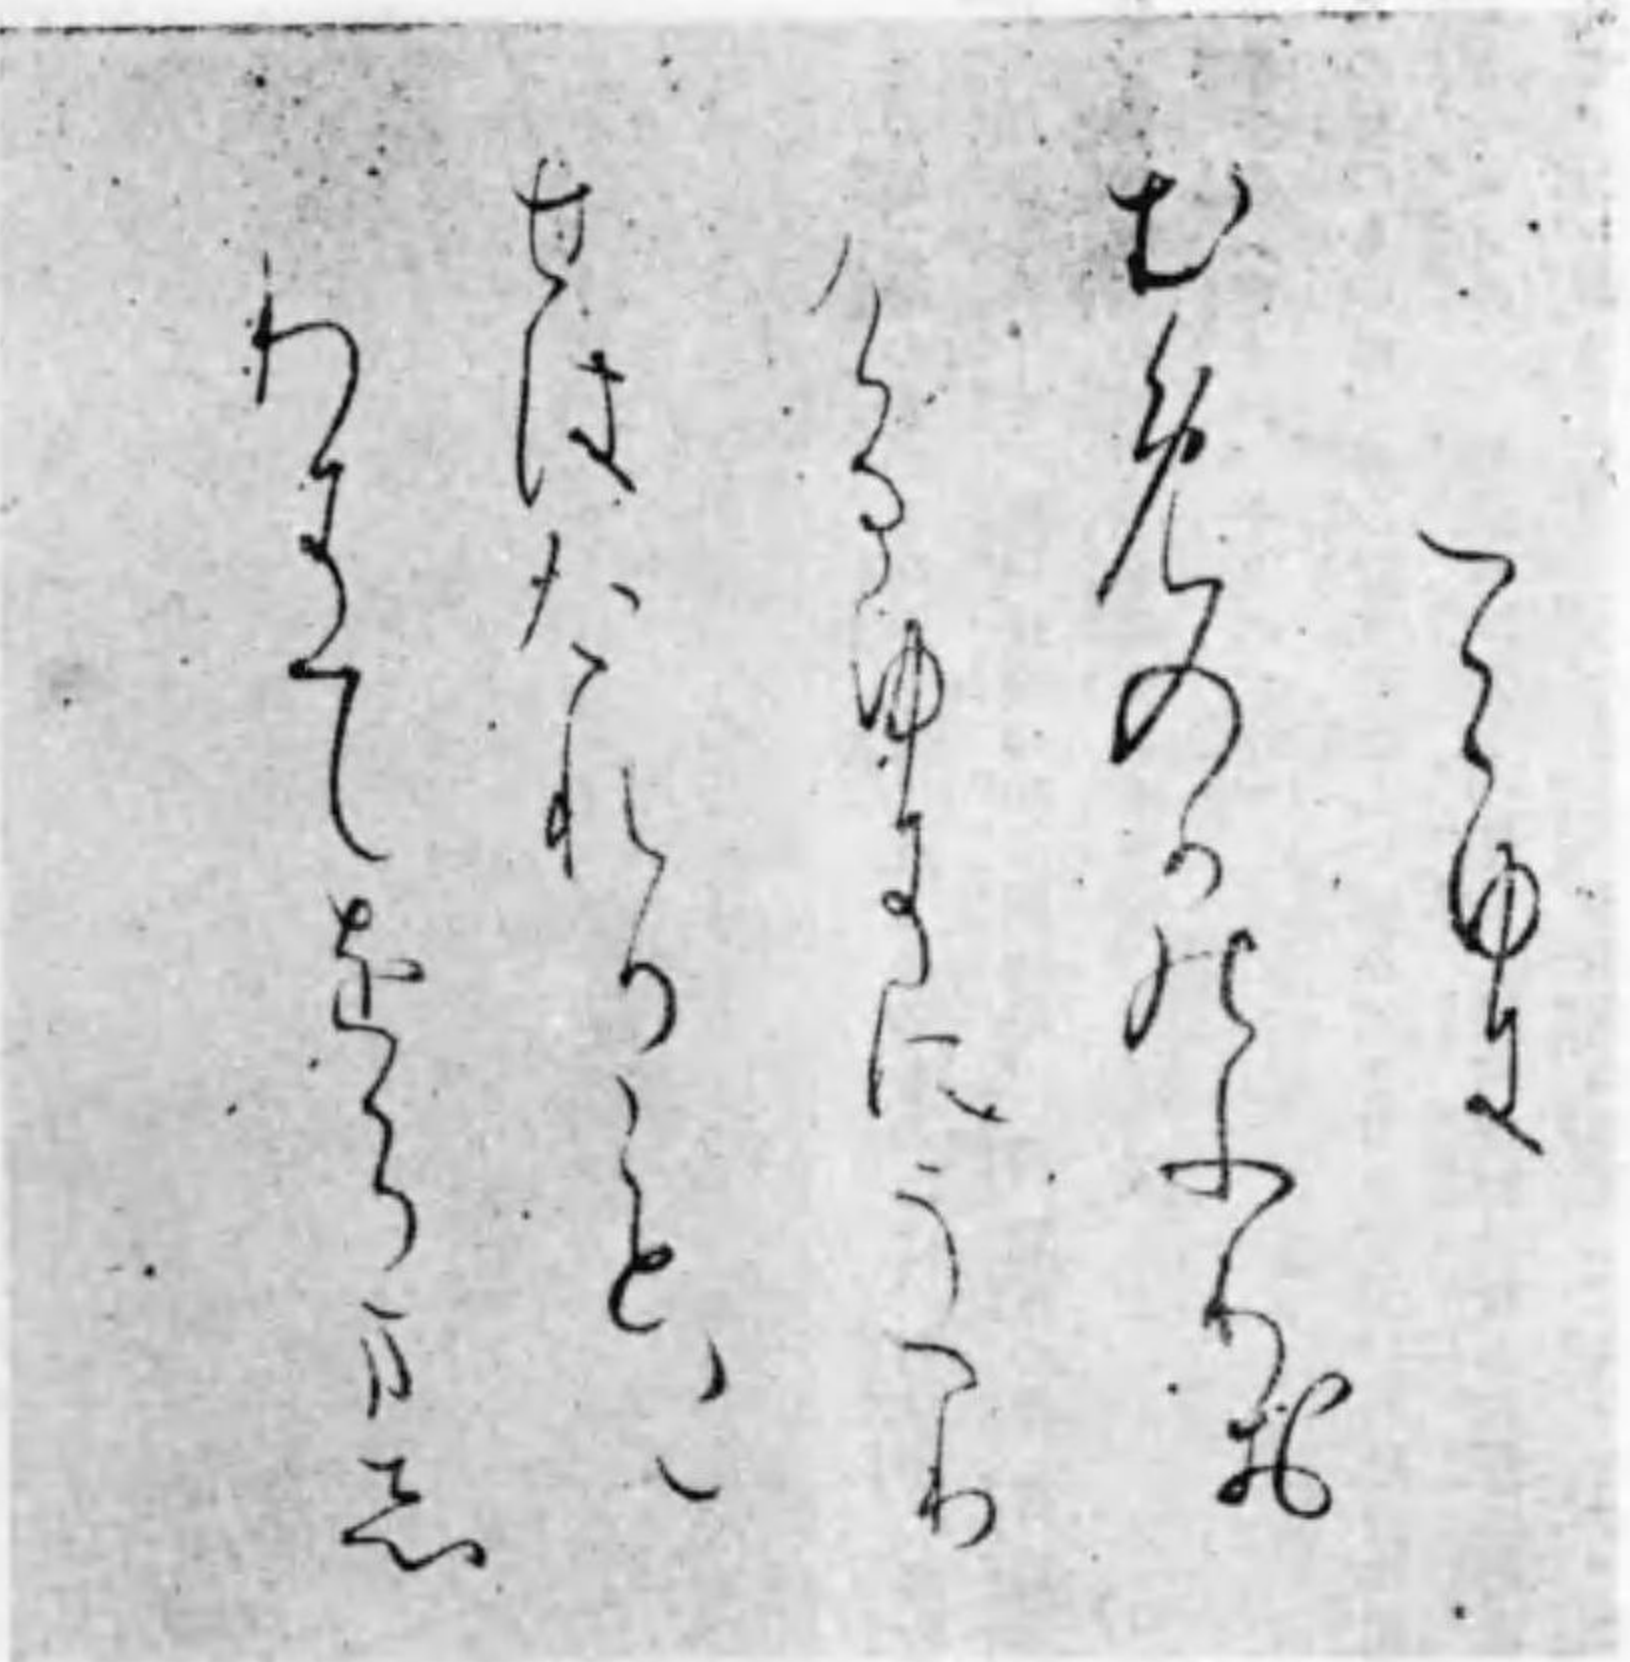 つらゆき
むめのかのふりお
けるゆきにうつり
せはたれかこと〳〵
わきてをらまし